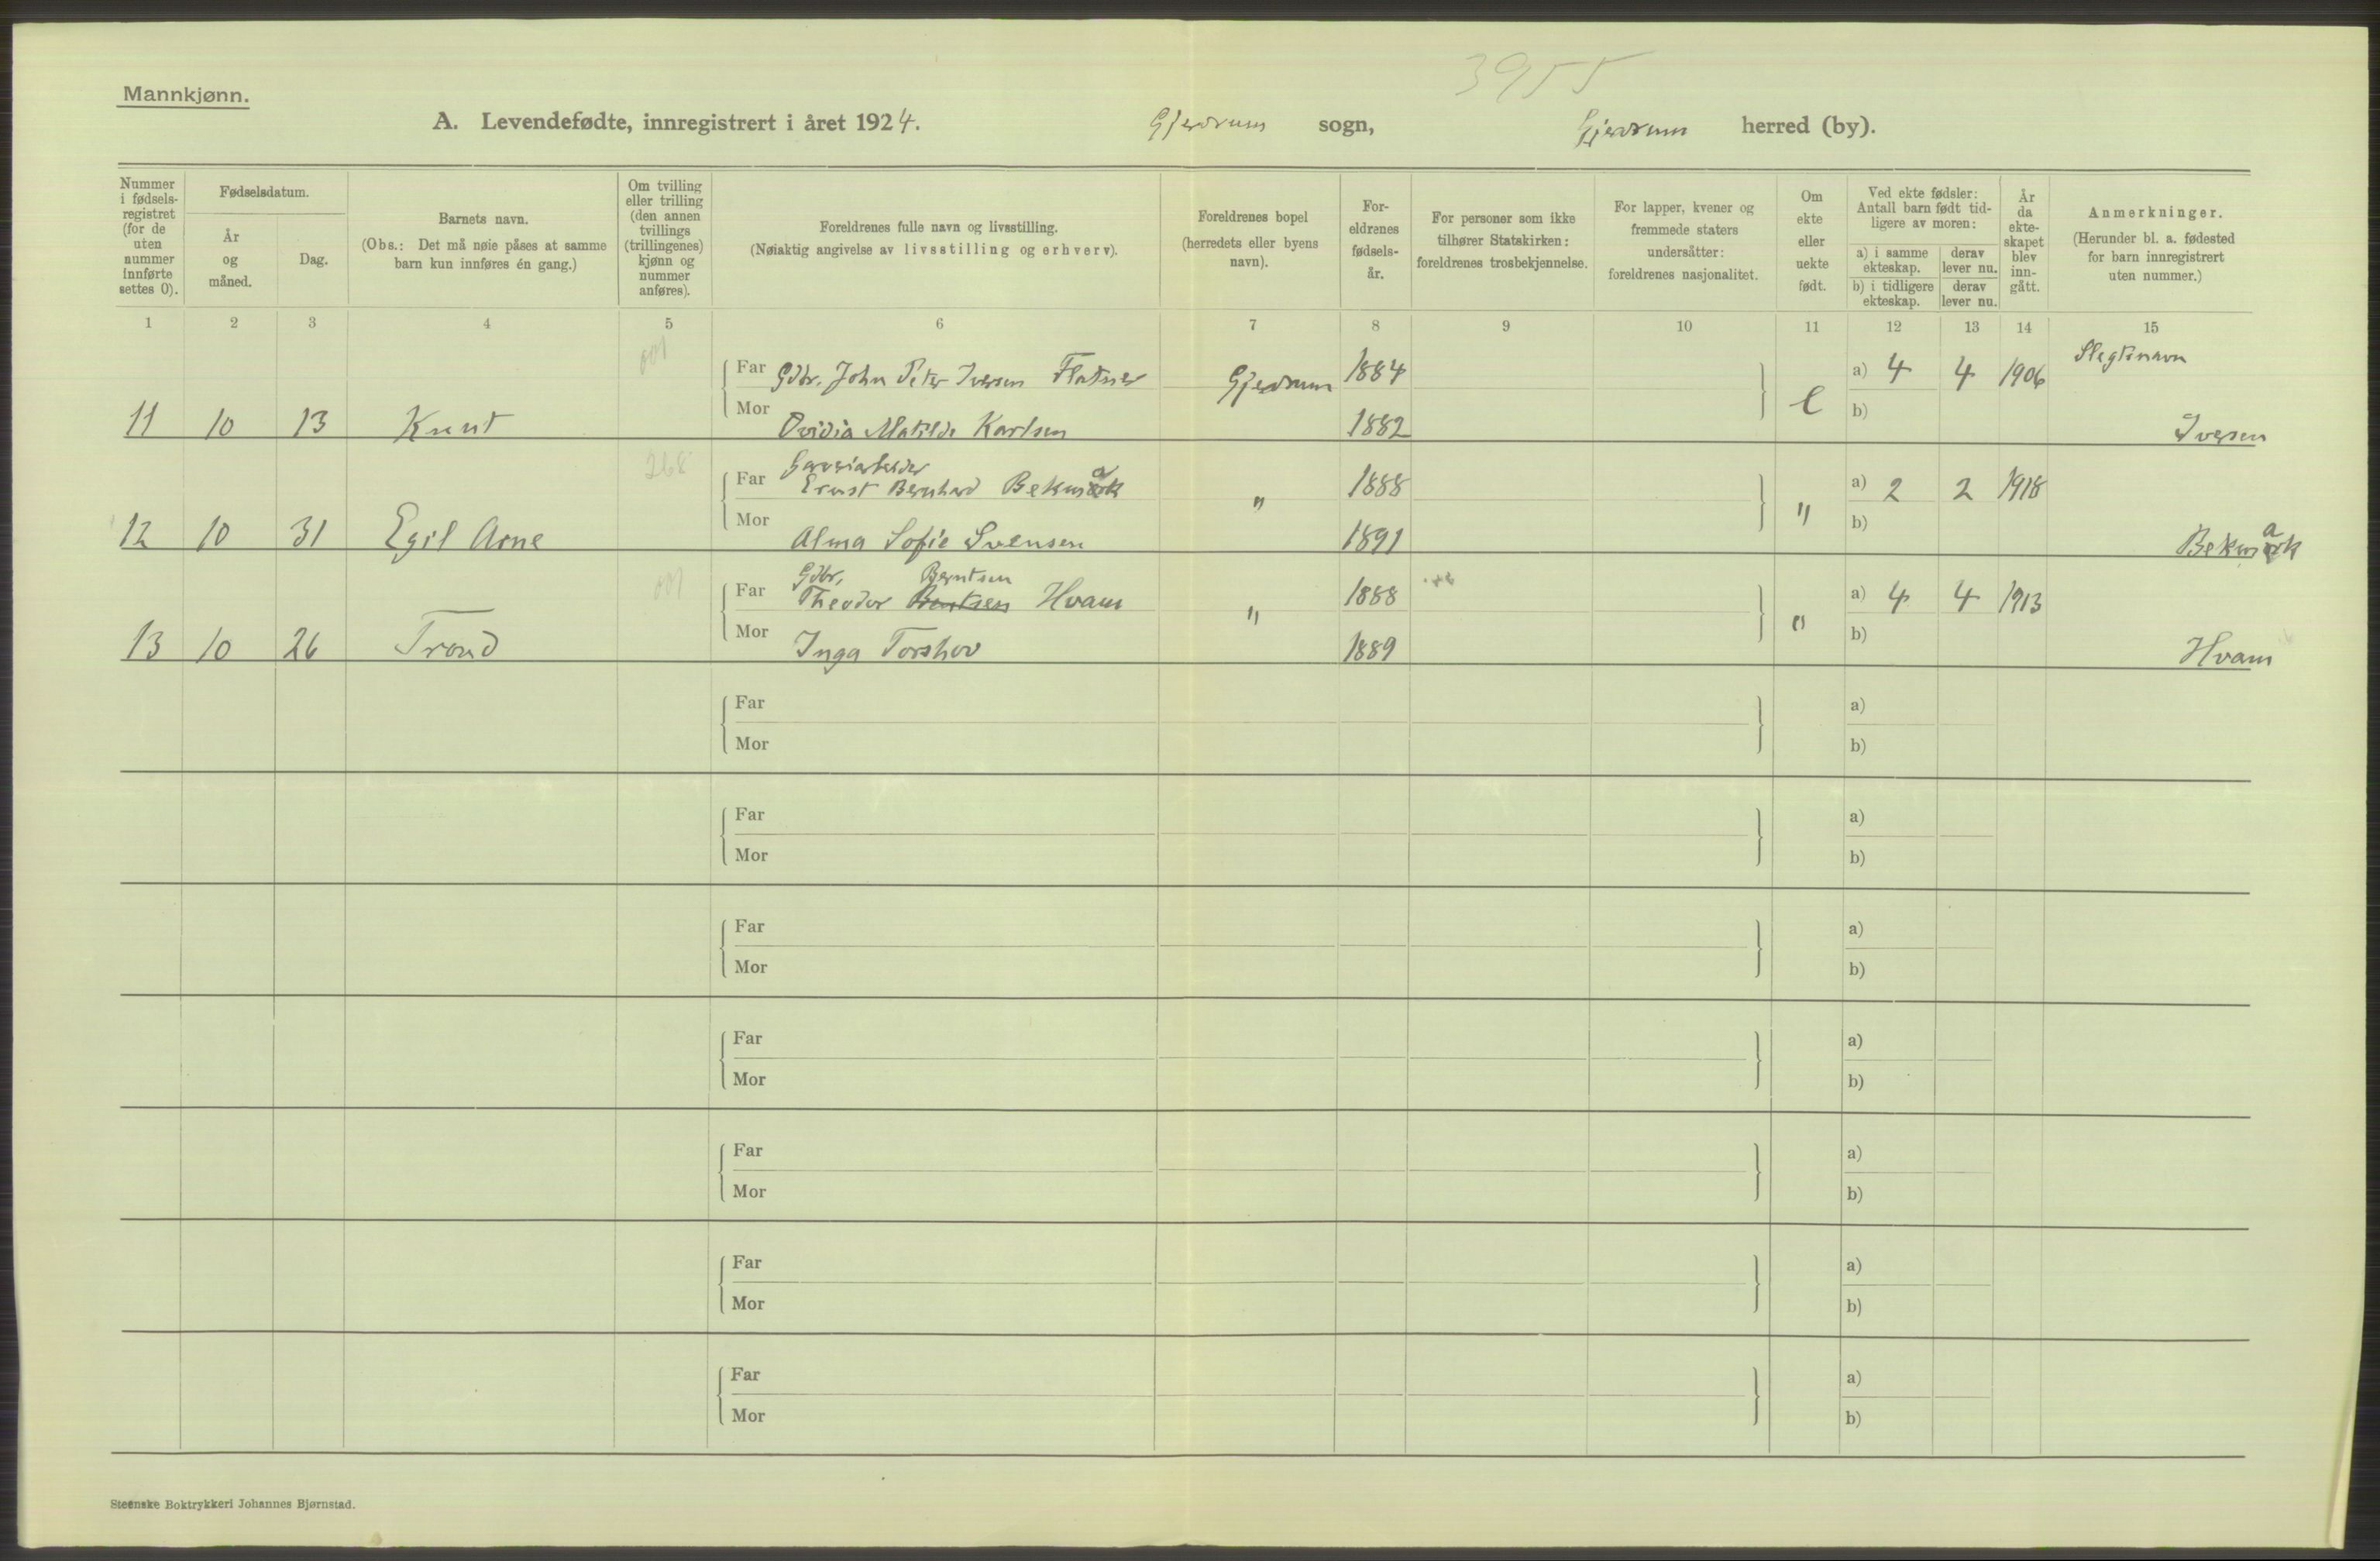 3955
Mannkjønn.
A. Levendefødte, innregistrert i året 1924. Gjerdrum sogn, Gjerdrum herred (by).
Nummer i fødsels-registret (for de uten nummer innførte settes 0).
Fødselsdatum.
År og måned.
Dag.
Barnets navn.
(Obs.: Det må nøie påses at samme barn kun innføres én gang.)
Om tvilling eller trilling (den annen tvillings (trillingenes) kjønn og nummer anføres).
Foreldrenes fulle navn og livsstilling.
(Nøiaktig angivelse av livsstilling og erhverv).
Foreldrenes bopel
(herredets eller byens navn).
For-eldrenes fødsels-år.
For personer som ikke tilhører Statskirken: foreldrenes trosbekjennelse.
For lapper, kvener og fremmede staters undersåtter: foreldrenes nasjonalitet.
Om ekte eller uekte født.
Ved ekte fødsler: Antall barn født tid-ligere av moren:
a) i samme ekteskap. derav lever nu.
b) i tidligere ekteskap. derav lever nu.
År da ekte-skapet blev inn-gått.
Anmerkninger.
(Herunder bl. a. fødested for barn innregistrert uten nummer.)
1 2 3 4 5 6 7 8 9 10 11 12 13 14 15
Slegtsnavn
Far Gdbr. John Peter Iversen Flatner Gjerdrum 1884 e a) 4 4 1906
11 10 13 Knut Mor Ovidia Matilde Karlsen 1882 b) Iversen
268
Far Garveriarbeider
Ernst Bernhard Bekmark " 1888 " a) 2 2 1918
12 10 31 Egil Arne Mor Alma Sofie Svensen 1891 b) Bekmark
Far Gdbr. Berntsen
Theodor Bentsen Hvam " 1888 " a) 4 4 1913
13 10 26 Trond Mor Inga Torshov 1889 b) Hvam
Far a)
Mor b)
Far a)
Mor b)
Far a)
Mor b)
Far a)
Mor b)
Far a)
Mor b)
Far a)
Mor b)
Far a)
Mor b)
Steenske Boktrykkeri Johannes Bjørnstad.